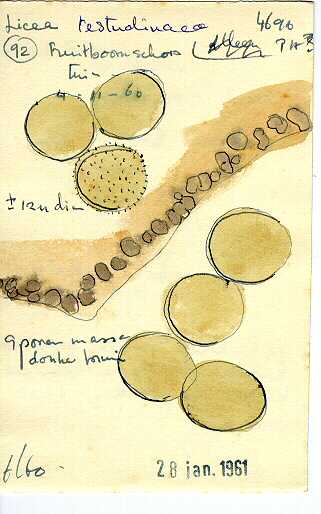 Licea testudinacea 4690
92 Fruitboomschors
tuin
4-11-60
± 12 u diam
sporen massa
donker bruin
6/60.
28 jan. 1961